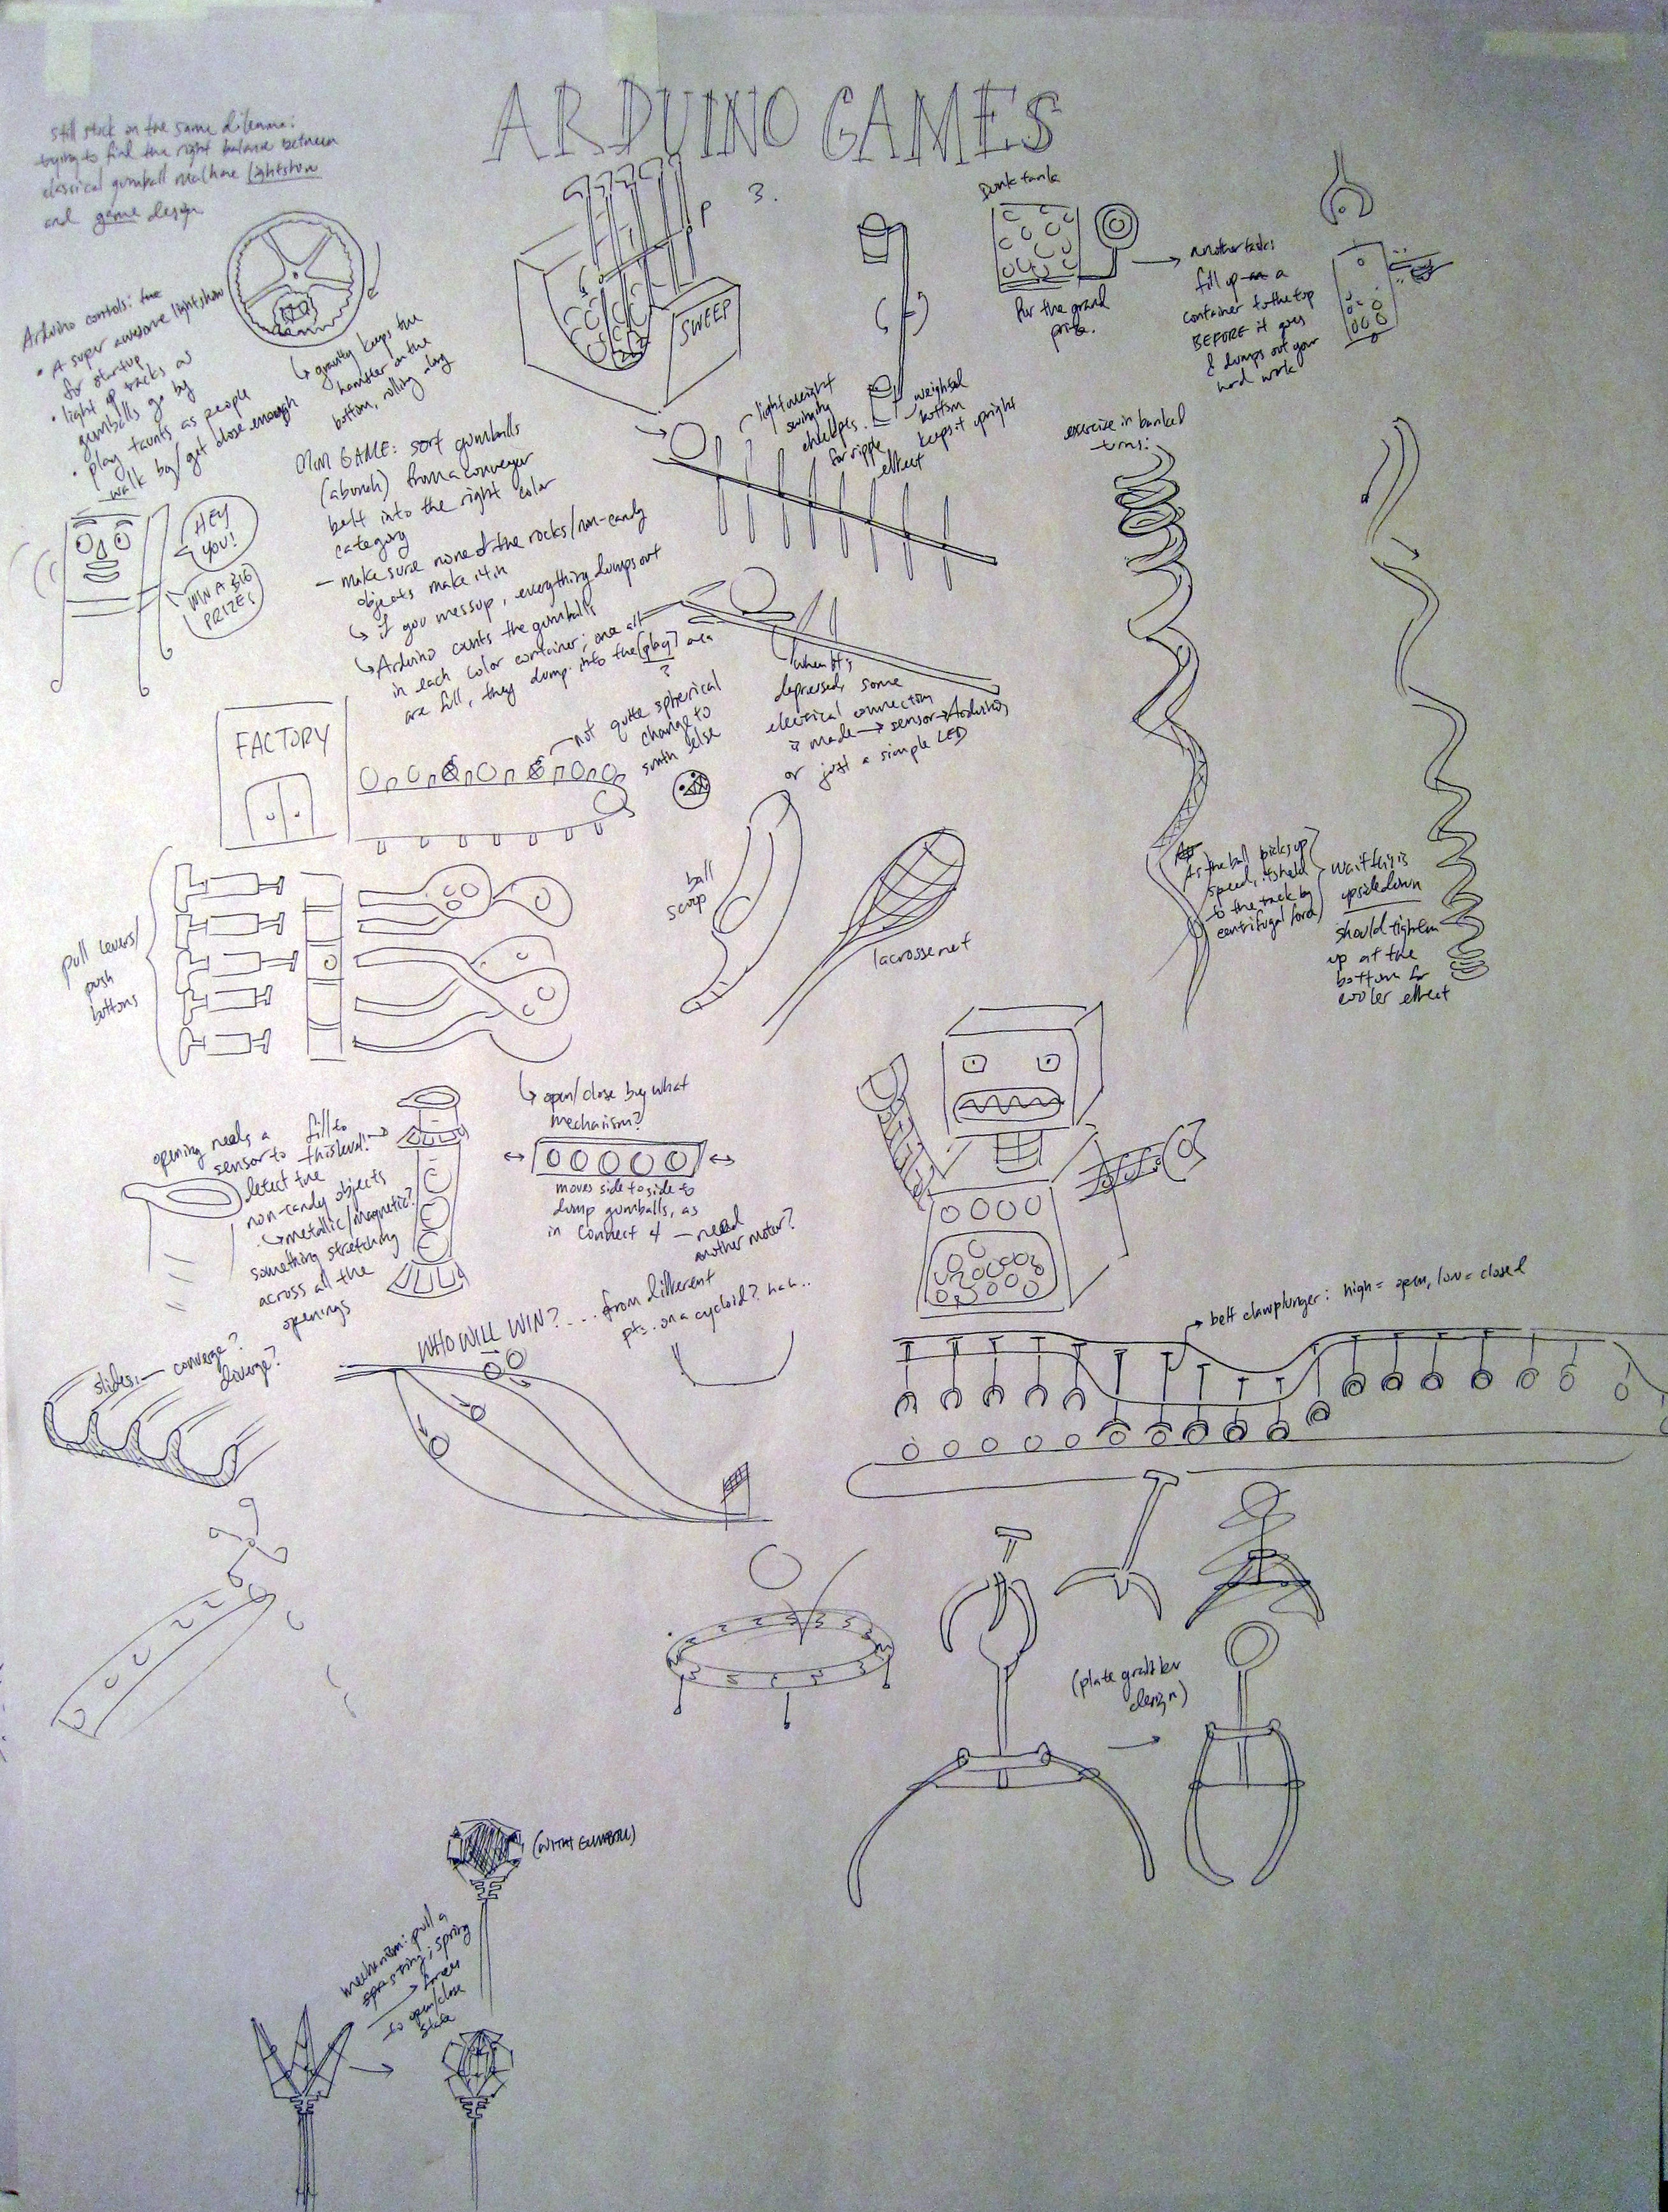 ARDUINO GAMES
still stuck on the same dilemma:
trying to find the right balance between
classical gumball machine lightshow
and game design
Arduino controls: the
• A super awesome lightshow
for startup
• light up tracks as
gumballs go by
• play taunts as people
walk by/get close enough
↳ gravity keeps the
hamster on the
bottom, rolling along
HEY
YOU!
WIN A BIG
PRIZE!
P
3.
SWEEP
Dunk tank
for the grand
prize.
another task:
fill up a
container to the top
BEFORE it goes
& dumps out your
hard work
lightweight
swinging
for ripple
effect
weighted
bottom
keeps it upright
MINI GAME: sort gumballs
(abunch) from a conveyer
belt into the right color
category
– make sure none of the rocks/non-candy
objects make it in
↳ if you mess up, everything dumps out
↳ Arduino counts the gumballs
in each color container; once all
are full, they dump into the [play] area
?
exercise in banked
turns:
when it's
depressed, some
electrical connection
is made → sensor → Arduino
or just a simple LED
FACTORY
not quite spherical
change to
smth else
ball
scoop
lacrosse net
As the ball picks up
speed, it's held
to the track by
centrifugal force
wait this is
upsidedown
should tighten
up at the
bottom for
cooler effect
pull levers/
push
buttons
↳ open/close by what
mechanism?
moves side to side to
dump gumballs, as
in Connect 4 – need
another motor?
opening needs a
sensor to
detect the
non-candy objects
↳ metallic/magnetic?
something stretching
across all the
openings
fill to
this level! →
WHO WILL WIN? ... from different
pts. on a cycloid? hah..
slides: – converge?
diverge?
→ belt claw plunger: high = open, low = closed
(plate grabber
design)
(WITH GUMBALL)
mechanism: pull a
string; spring
forces
to open/close
state